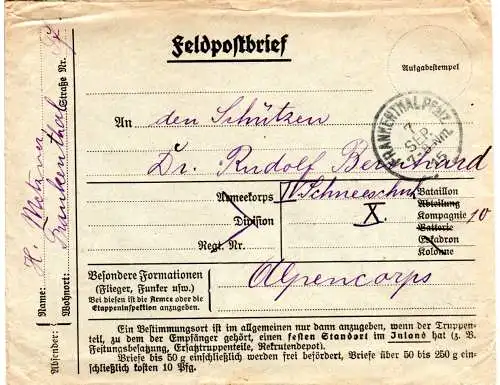 Feldpostbrief
Aufgabestempel
An den Schützen
Dr. Rudolf Bernhard
FRANKENTHAL PFALZ
7
SEP.
7-8 Nm.
15
Armeekorps IV. Schneeschuh Bataillon
Abteilung
Division X. Kompagnie 10
Batterie
Regt. Nr. Eskadron
Kolonne
Besondere Formationen
(Flieger, Funker usw.)
Bei diesen ist die Armee oder die
Etappeninspektion anzugeben.
Alpencorps
Ein Bestimmungsort ist im allgemeinen nur dann anzugeben, wenn der Truppen-
teil, zu dem der Empfänger gehört, einen festen Standort im Inland hat (z. B.
Festungsbesatzung, Ersatztruppenteile, Rekrutendepot).
Briefe bis 50 g einschließlich werden frei befördert, Briefe über 50 bis 250 g ein-
schließlich kosten 10 Pfg.
Absender:
Name: H.
Wohnort: Frankenthal Straße Nr.